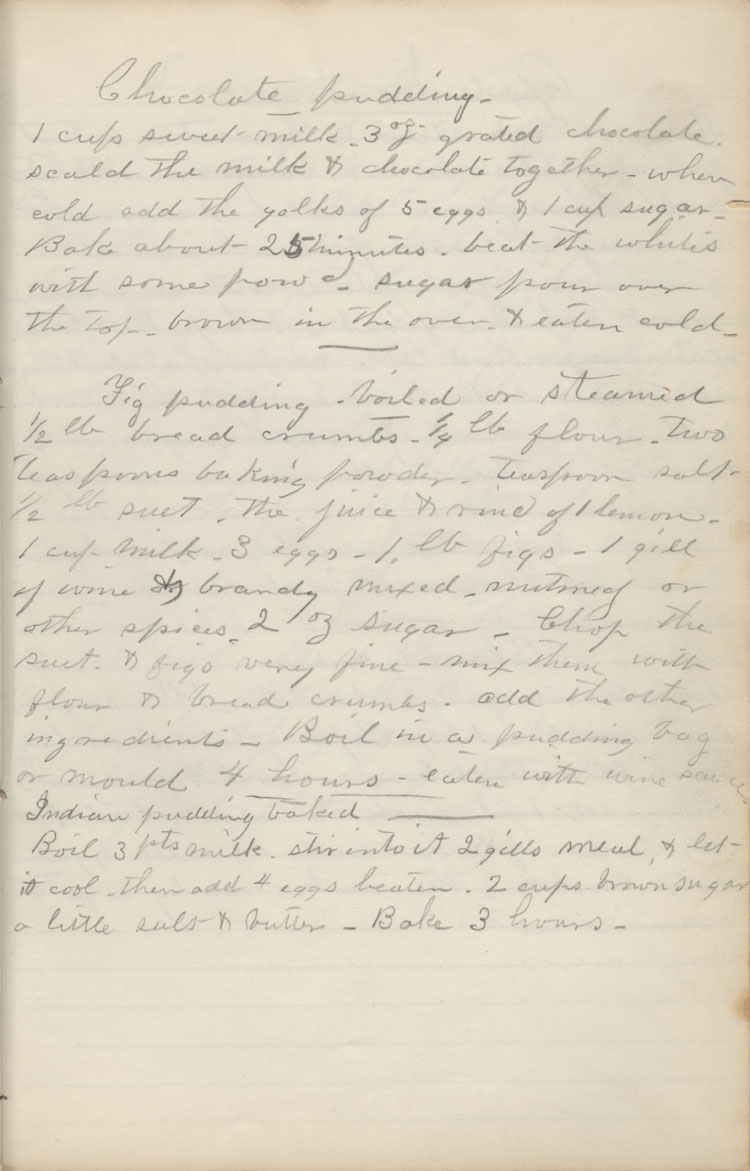 Chocolate pudding -
1 cup sweet milk - 3 oz grated chocolate.
scald the milk & chocolate together - when
cold add the yolks of 5 eggs & 1 cup sugar -
Bake about 25 minutes - beat the whites
with some powd - sugar pour over
the top - brown in the oven - & eaten cold -
Fig pudding - boiled or steamed
1/2 lb bread crumbs - 1/4 lb flour - two
teaspoons baking powder - teaspoon salt -
1/2 lb suet - the juice & rind of 1 lemon -
1 cup milk - 3 eggs - 1 lb figs - 1 gill
of wine & brandy mixed - nutmeg or
other spices - 2 oz sugar - Chop the
suet & figs very fine - mix them with
flour & bread crumbs - add the other
ingredients - Boil in a pudding bag
or mould 4 hours - eaten with wine sauce
Indian pudding baked
Boil 3 pts milk - stir into it 2 gills meal, & let
it cool - then add 4 eggs beaten - 2 cups brown sugar
a little salt & butter - Bake 3 hours -